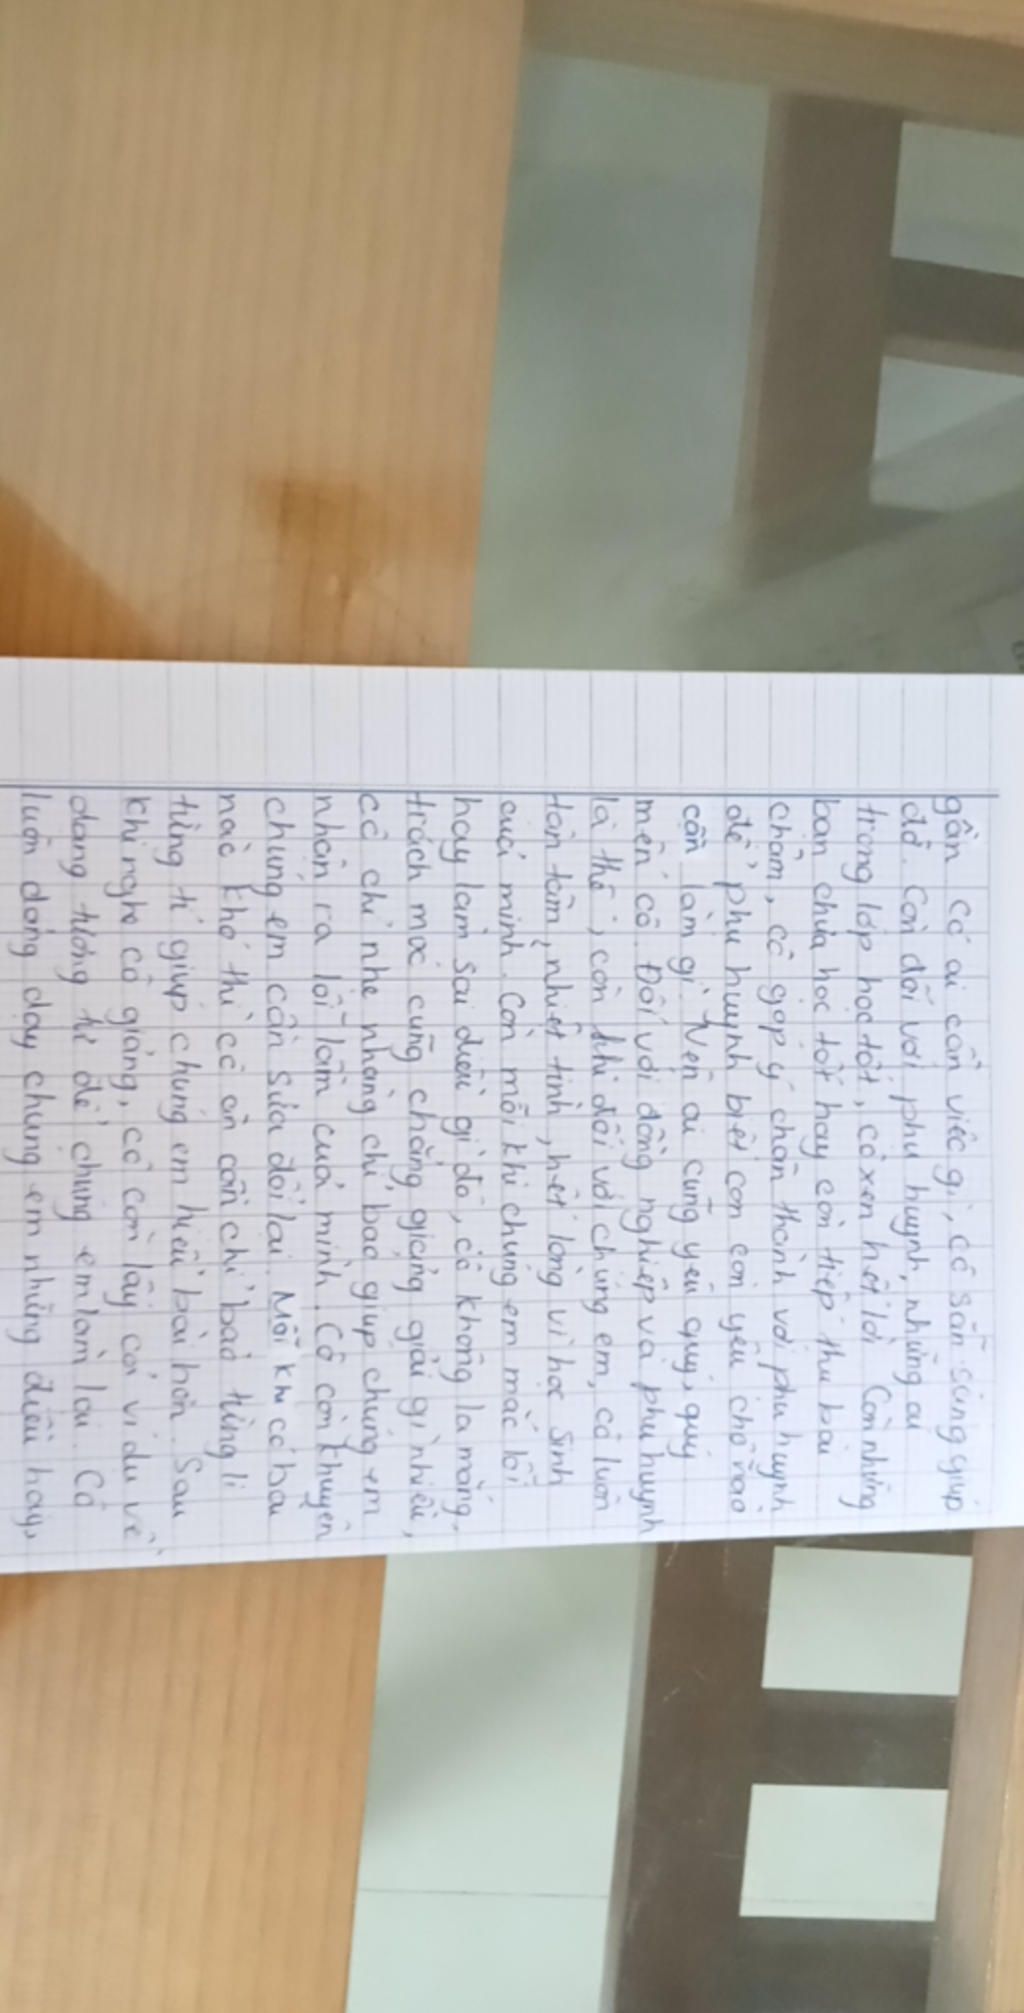 gần. Có ai cần việc gì, cô sẵn sàng giúp
đỡ. Còn đối với phụ huynh, những ai
trong lớp học tốt, cô xen hết lời. Còn những
bạn chưa học tốt hay còn tiếp thu bài
chậm, cô góp ý chân thành với phụ huynh
để phụ huynh biết con còn yếu chỗ nào
cần làm gì. Nên ai cũng yêu quý, quý
mến cô. Đối với đồng nghiệp và phụ huynh
là thế, còn khi đối với chúng em, cô luôn
tận tâm, nhiệt tình, hết lòng vì học sinh
của mình. Còn mỗi khi chúng em mắc lỗi
hay làm sai điều gì đó, cô không la mắng,
trách móc cũng chẳng giảng giải gì nhiều,
cô chỉ nhẹ nhàng chỉ bảo giúp chúng em
nhận ra lỗi lầm của mình. Cô còn khuyên
chúng em cần sửa đổi lại. Mỗi khi có bài
nào khó thì cô ân cần chỉ bảo từng li
từng tí giúp chúng em hiểu bài hơn. Sau
khi nghe cô giảng, cô còn lấy cả ví dụ về
dạng tương tự để chúng em làm lại. Cô
luôn dóng dạy chúng em những điều hay,